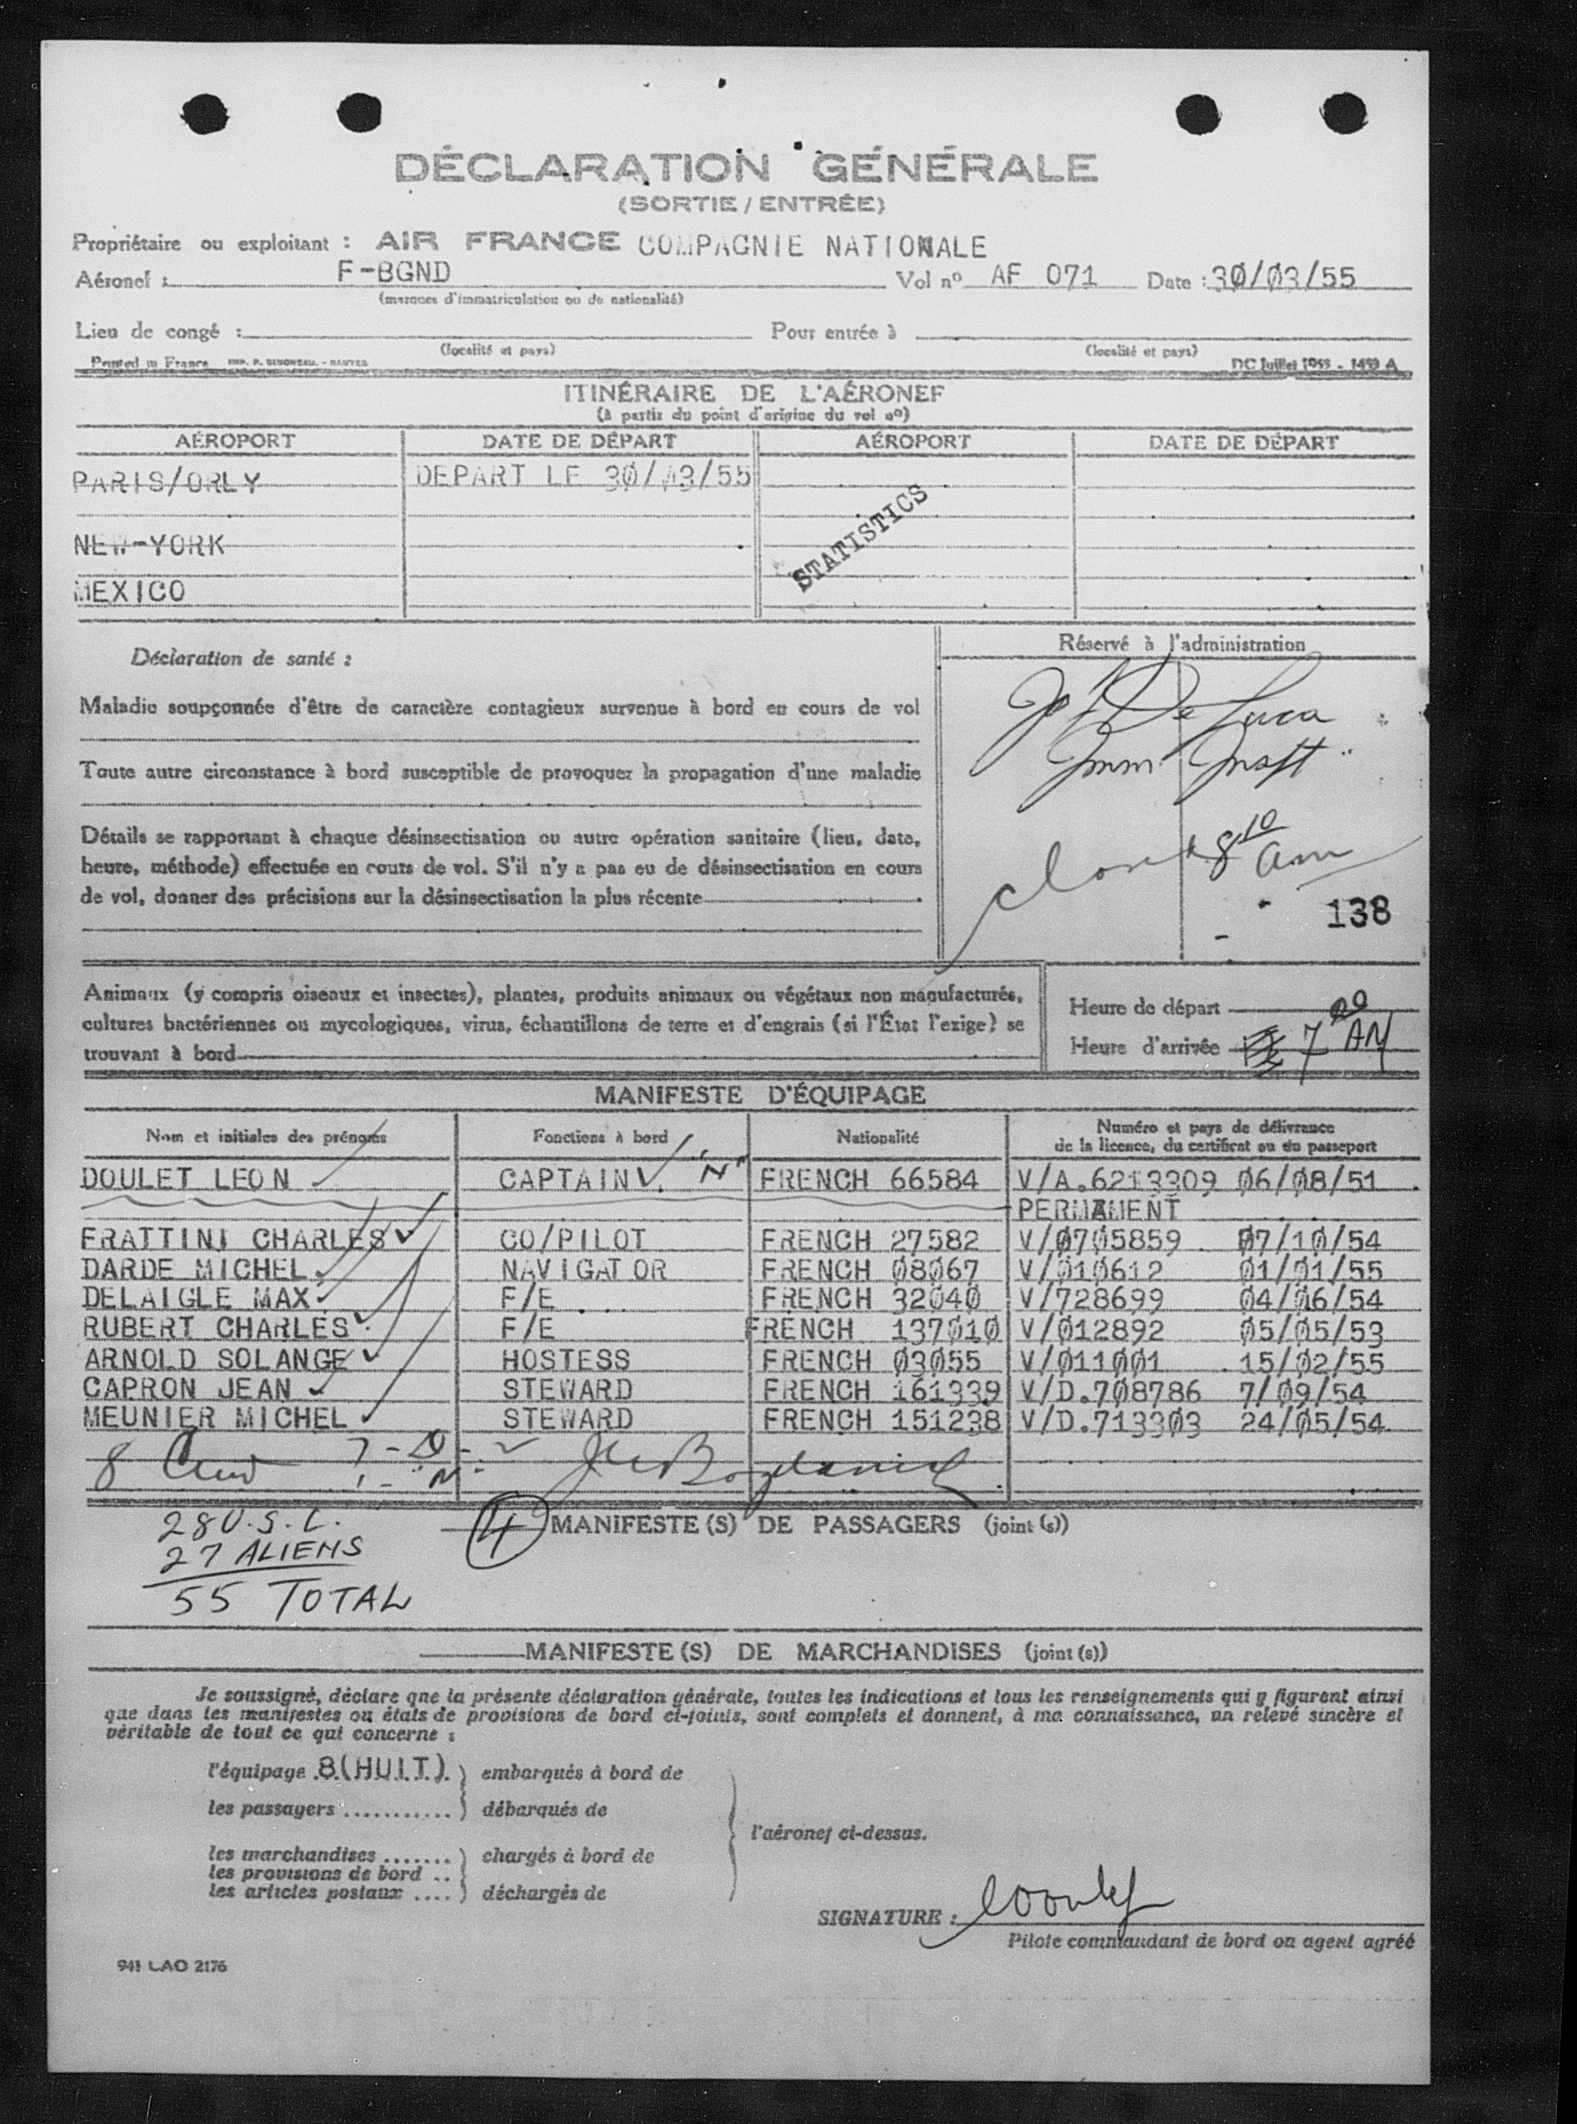 DÉCLARATION GÉNÉRALE
(SORTIE / ENTRÉE)
Propriétaire ou exploitant : AIR FRANCE COMPAGNIE NATIONALE
Aéronef : F-BGND Vol nº AF 071 Date : 30/03/55
(marques d'immatriculation ou de nationalité)
Lieu de congé : Pour entrée à
(localité et pays) (localité et pays)
Printed in France DC Juillet 1953 - 1453 A
ITINÉRAIRE DE L'AÉRONEF
(à partir du point d'origine du vol nº)
AÉROPORT DATE DE DÉPART AÉROPORT DATE DE DÉPART
PARIS/ORLY DEPART LE 30/03/55
STATISTICS
NEW-YORK
MEXICO
Déclaration de santé :
Réservé à l'administration
Maladie soupçonnée d'être de caractère contagieux survenue à bord en cours de vol
De Luca
Imm Inspt
Toute autre circonstance à bord susceptible de provoquer la propagation d'une maladie
Détails se rapportant à chaque désinsectisation ou autre opération sanitaire (lieu, date,
heure, méthode) effectuée en cours de vol. S'il n'y a pas eu de désinsectisation en cours
de vol, donner des précisions sur la désinsectisation la plus récente
8 10 am
138
Animaux (y compris oiseaux et insectes), plantes, produits animaux ou végétaux non manufacturés,
cultures bactériennes ou mycologiques, virus, échantillons de terre et d'engrais (si l'État l'exige) se
trouvant à bord
Heure de départ
Heure d'arrivée 7 20 AM
MANIFESTE D'ÉQUIPAGE
Nom et initiales des prénoms Fonctions à bord Nationalité Numéro et pays de délivrance
de la licence, du certificat ou du passeport
DOULET LEON CAPTAIN "N" FRENCH 66584 V/A.6213309 06/08/51
PERMANENT
FRATTINI CHARLES CO/PILOT FRENCH 27582 V/0705859 07/10/54
DARDE MICHEL NAVIGATOR FRENCH 08067 V/010612 01/01/55
DELAIGLE MAX F/E FRENCH 32040 V/728699 04/06/54
RUBERT CHARLES F/E FRENCH 137010 V/012892 05/05/53
ARNOLD SOLANGE HOSTESS FRENCH 03055 V/011001 15/02/55
CAPRON JEAN STEWARD FRENCH 161339 V/D.708786 7/09/54
MEUNIER MICHEL STEWARD FRENCH 151238 V/D.713303 24/05/54
8 Crew 7 - D -
1 - "N"
28 U.S.C.
27 ALIENS
55 TOTAL
4 MANIFESTE(S) DE PASSAGERS (joint(s))
MANIFESTE(S) DE MARCHANDISES (joint(s))
Je soussigné, déclare que la présente déclaration générale, toutes les indications et tous les renseignements qui y figurent ainsi
que dans les manifestes ou états de provisions de bord ci-joints, sont complets et donnent, à ma connaissance, un relevé sincère et
véritable de tout ce qui concerne :
l'équipage 8(HUIT) embarqués à bord de
les passagers débarqués de
l'aéronef ci-dessus.
les marchandises chargés à bord de
les provisions de bord
les articles postaux déchargés de
SIGNATURE :
Pilote commandant de bord ou agent agréé
941 LAO 2176